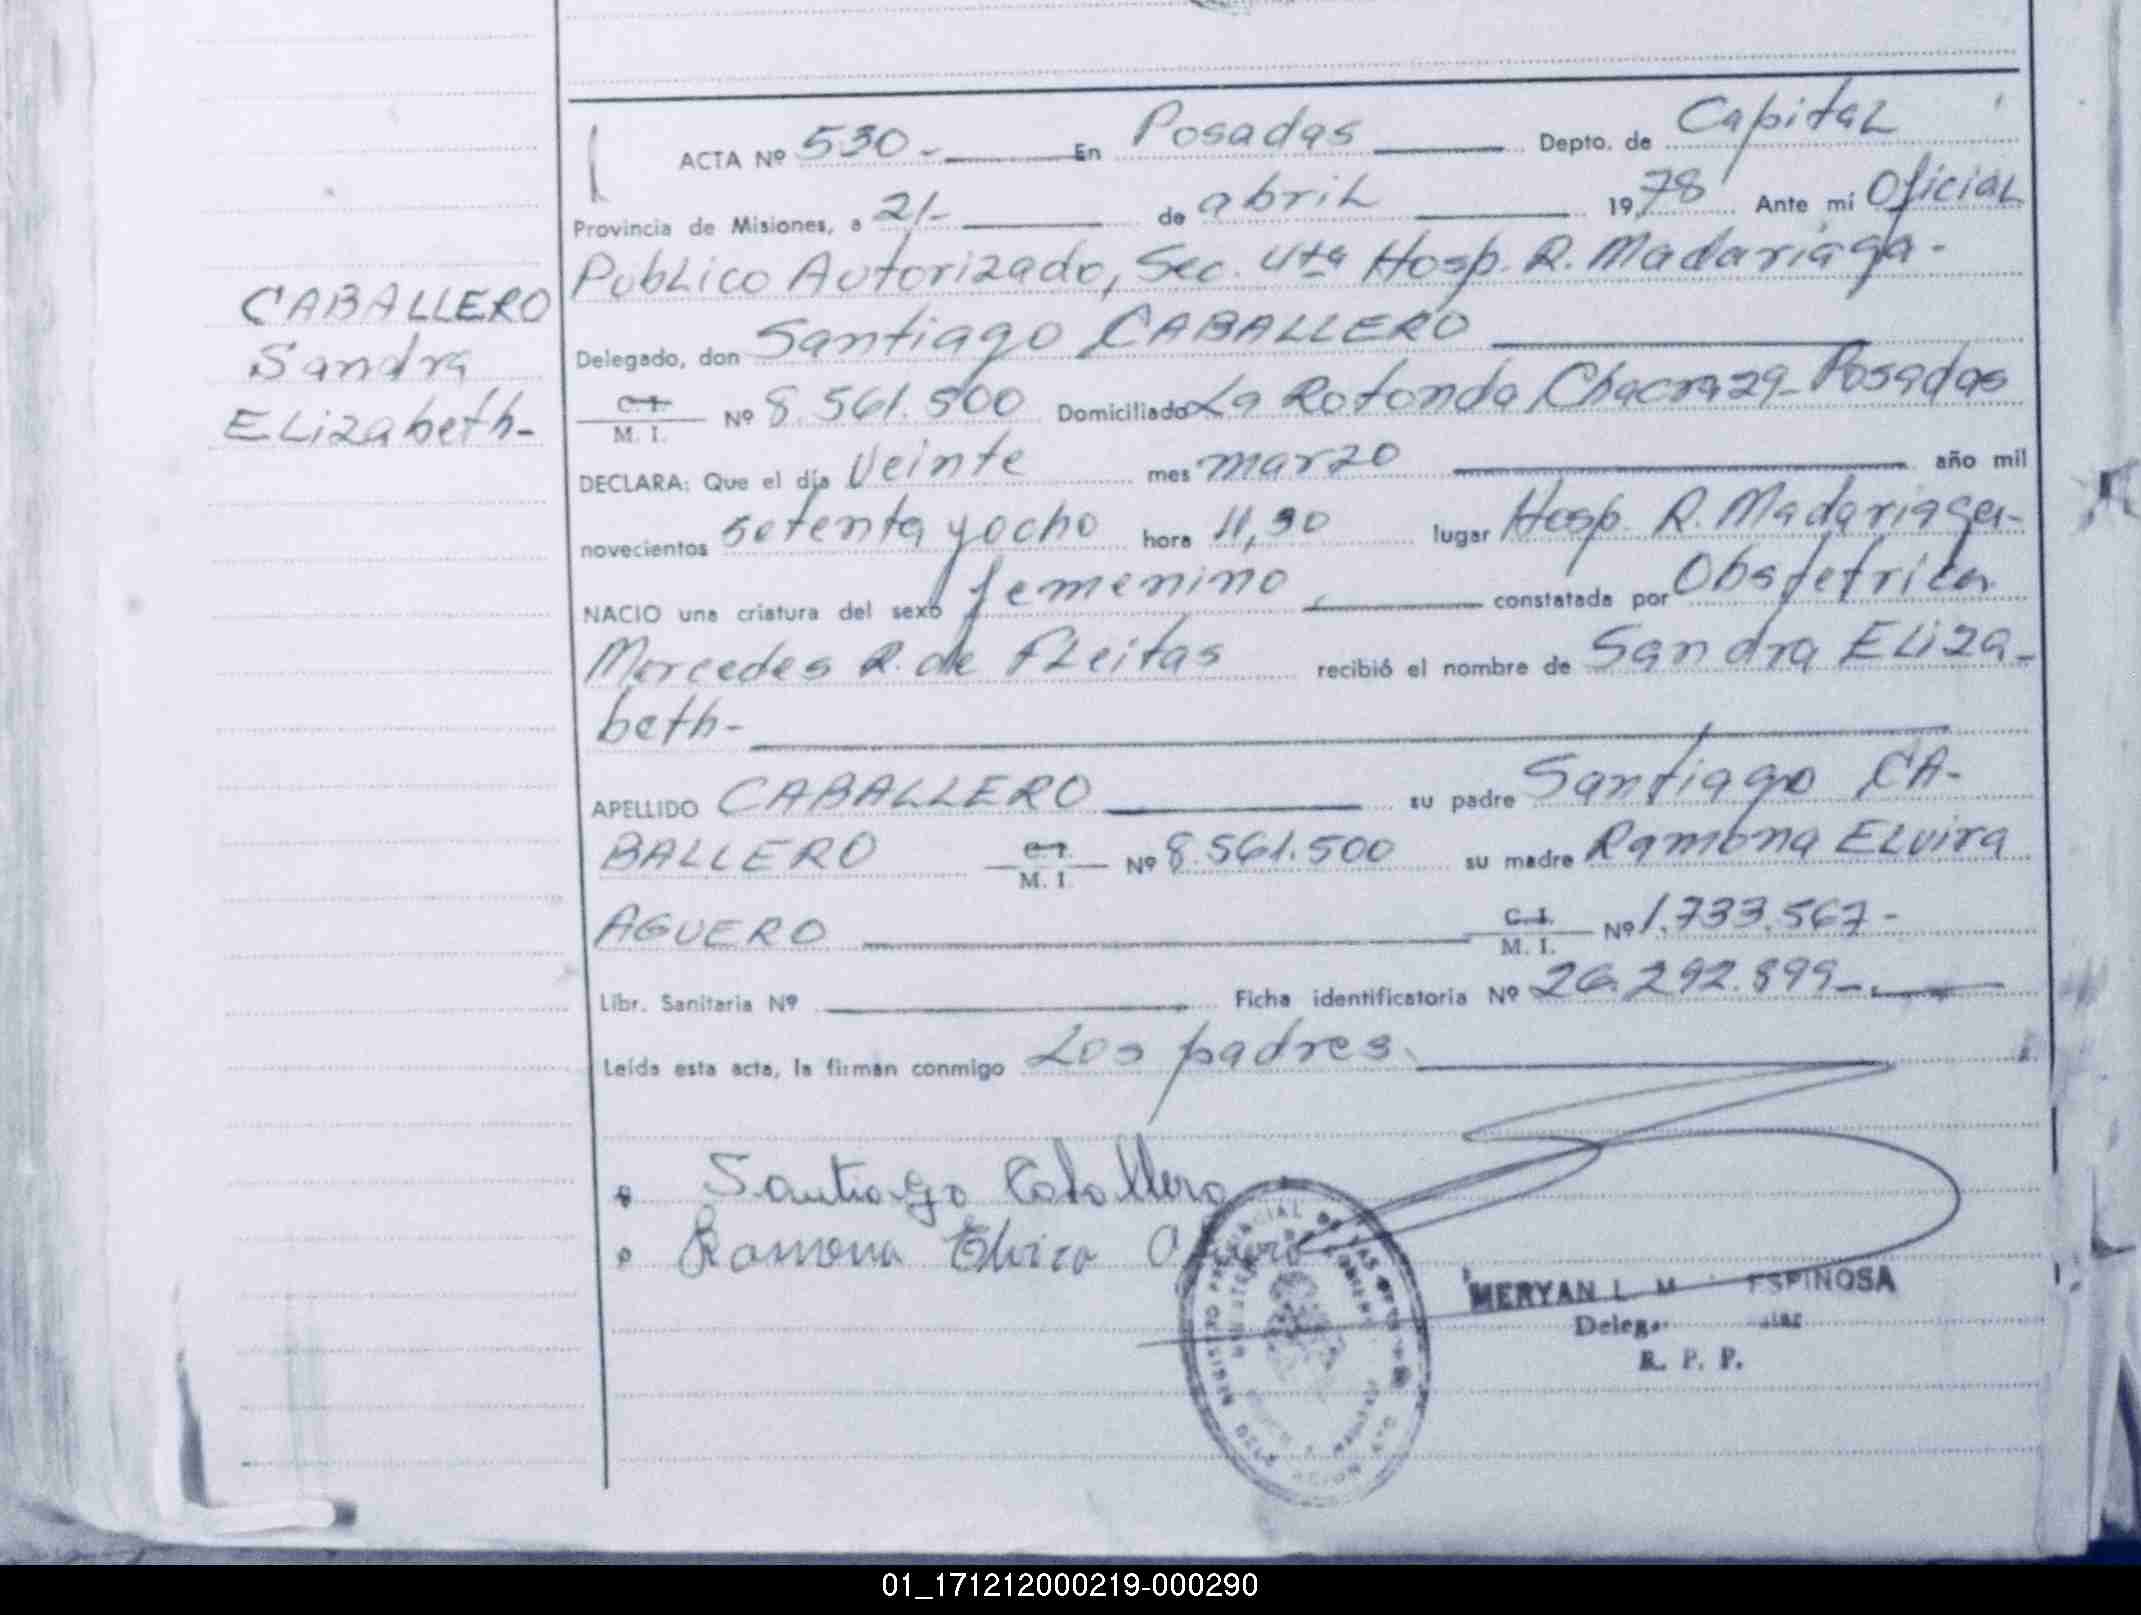 ACTA Nº 530- En Posadas Depto. de Capital
Provincia de Misiones, a 21- de abril 1978 Ante mi Oficial
Publico Autorizado, Sec. 4ta Hosp. R. Madariaga-
CABALLERO
Sandra
Elizabeth-
Delegado, don Santiago CABALLERO
C.I. M. I. Nº 8.561.500 Domiciliado La Rotonda, Chacra 29- Posadas
DECLARA: Que el día Veinte mes marzo año mil
novecientos setenta y ocho hora 11,30 lugar Hosp. R. Madariaga-
NACIO una criatura del sexo femenino, constatada por Obstetrica
Mercedes R. de Fleitas recibió el nombre de Sandra Eliza-
beth-
APELLIDO CABALLERO su padre Santiago CA-
BALLERO C.I. M. I. Nº 8.561.500 su madre Ramona Elvira
AGUERO C.I. M. I. Nº 1.733.567-
Libr. Sanitaria Nº Ficha identificatoria Nº 26.292.899-
Leída esta acta, la firman conmigo Los padres.
Santiago Caballero
Ramona Elvira
MERYAN L. M ESPINOSA
R. P. P.
01_171212000219-000290